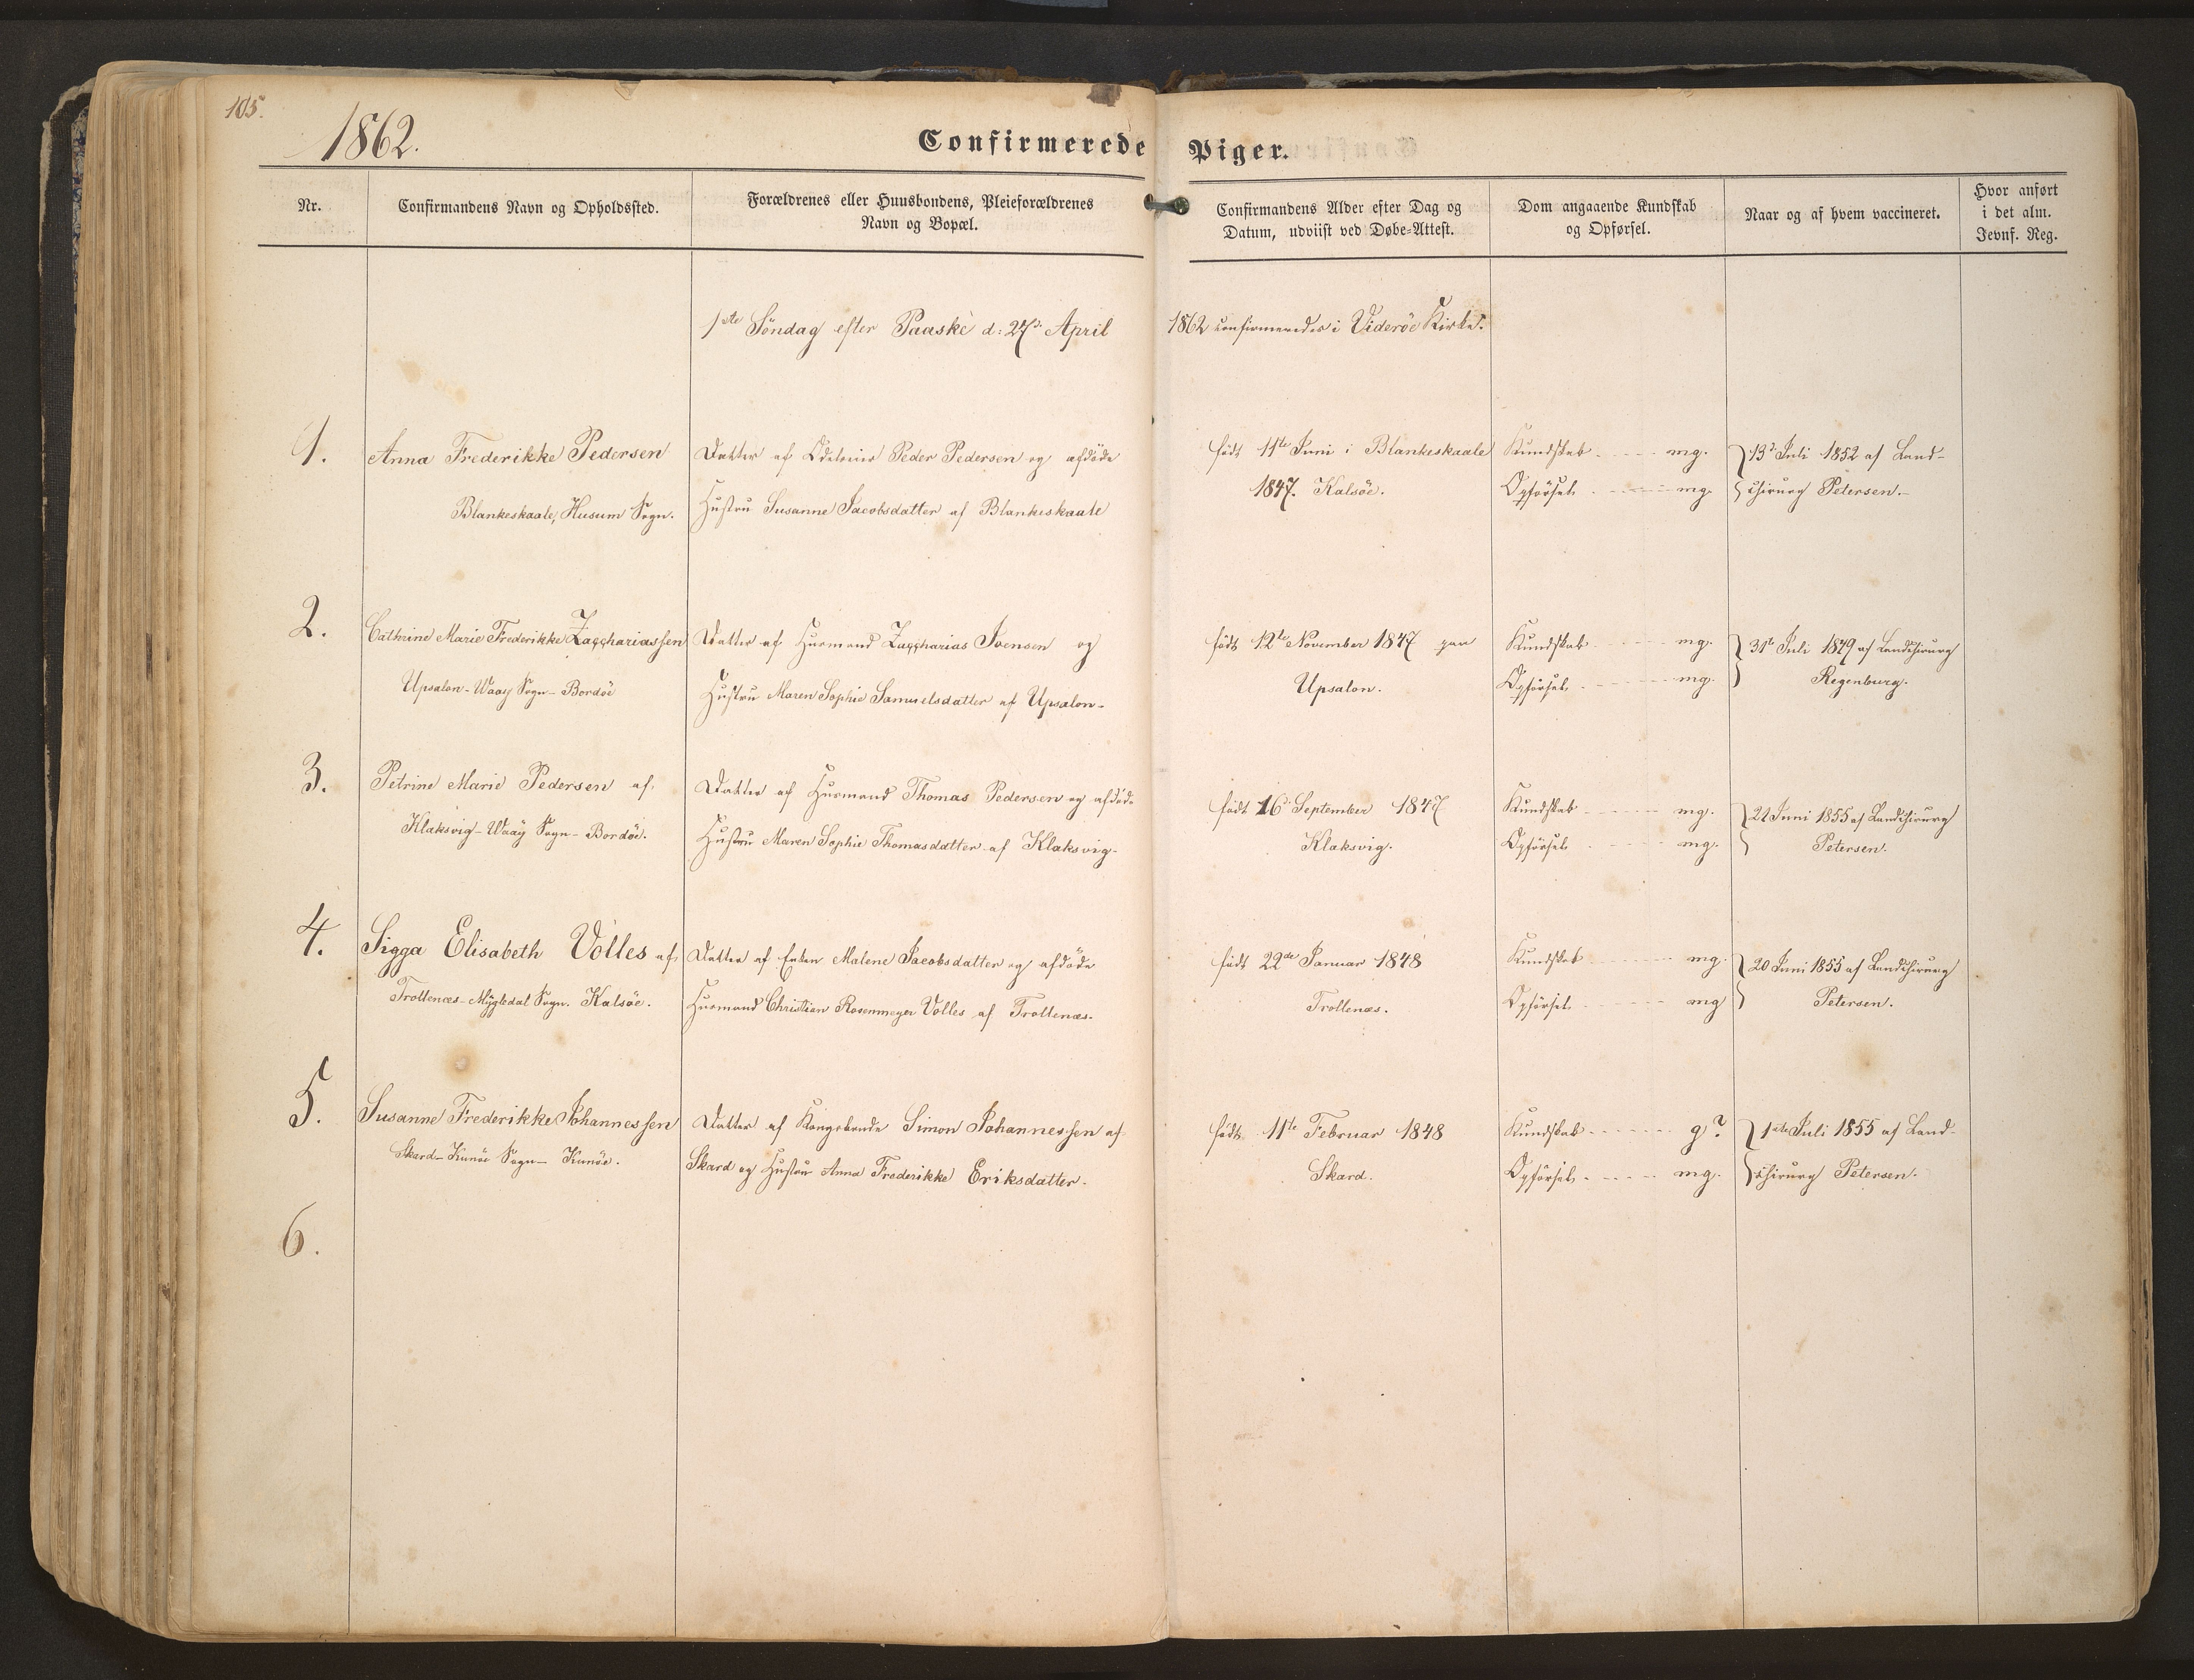 105.
1862.
Confirmerede Piger.
Nr.
Confirmandens Navn og Opholdssted.
Forældrenes eller Huusbondens, Pleieforældrenes
Navn og Bopæl.
Confirmandens Alder efter Dag og
Datum, udviist ved Døbe-Attest.
Dom angaaende Kundskab
og Opførsel.
Naar og af hvem vaccineret.
Hvor anført
i det alm.
Jevnf. Reg.
1ste Söndag efter Paaske d: 27d April 1862 confirmeredes i Videröe Kirke.
1.
Anna Frederikke Pedersen
Blankeskaale, Husum Sogn.
Datter af Peder Pedersen og afdöde
Hustru Susanne Jacobsdatter af Blankeskaale
födt 11te Juni i Blankeskaale
1847. Kalsöe.
Kundskab - - - - mg.
Opförsel - - - - mg.
13d Juli 1852 af Land-
chirurg Petersen.
2.
Cathrine Marie Frederikke Zacchariassen
Upsalon - Waay Sogn - Bordöe
Datter af Husmand Zaccharias Joensen og
Hustru Maren Sophie Samuelsdatter af Upsalon -
födt 12te November 1847 paa
Upsalon.
Kundskab - - - - mg.
Opförsel - - - - mg.
31te Juli 1849 af Landchirurg
Regenburg.
3.
Petrine Marie Pedersen af
Klaksvig - Waay Sogn - Bordöe.
Datter af Husmand Thomas Pedersen og afdöde
Hustru Maren Sophie Thomasdatter af Klaksvig -
födt 16d September 1847
Klaksvig.
Kundskab - - - - mg.
Opförsel - - - - mg.
Juni 1855 af Landchirurg
Petersen.
4.
Sigga Elisabeth Volles af
Trollenæs - Mygledal Sogn. Kalsöe.
Datter af Enken Malene Jacobsdatter og afdöde
Husmand Christian Rosenmeyer Volles af Trollenæs.
födt 22de Januar 1848
Trollenæs.
Kundskab - - - - mg.
Opförsel - - - - mg
20 Juni 1855 af Landchirurg
Petersen.
5.
Susanne Frederikke Johannessen
Skard - Kunöe Sogn - Kunöe.
Datter af Kongsbonde Simon Johannessen af
Skard og Hustru Anna Frederikke Eriksdatter.
födt 11te Februar 1848
Skard.
Kundskab - - - - g?
Opförsel - - - - mg.
1ste Juli 1855 af Land-
chirurg Petersen.
6.